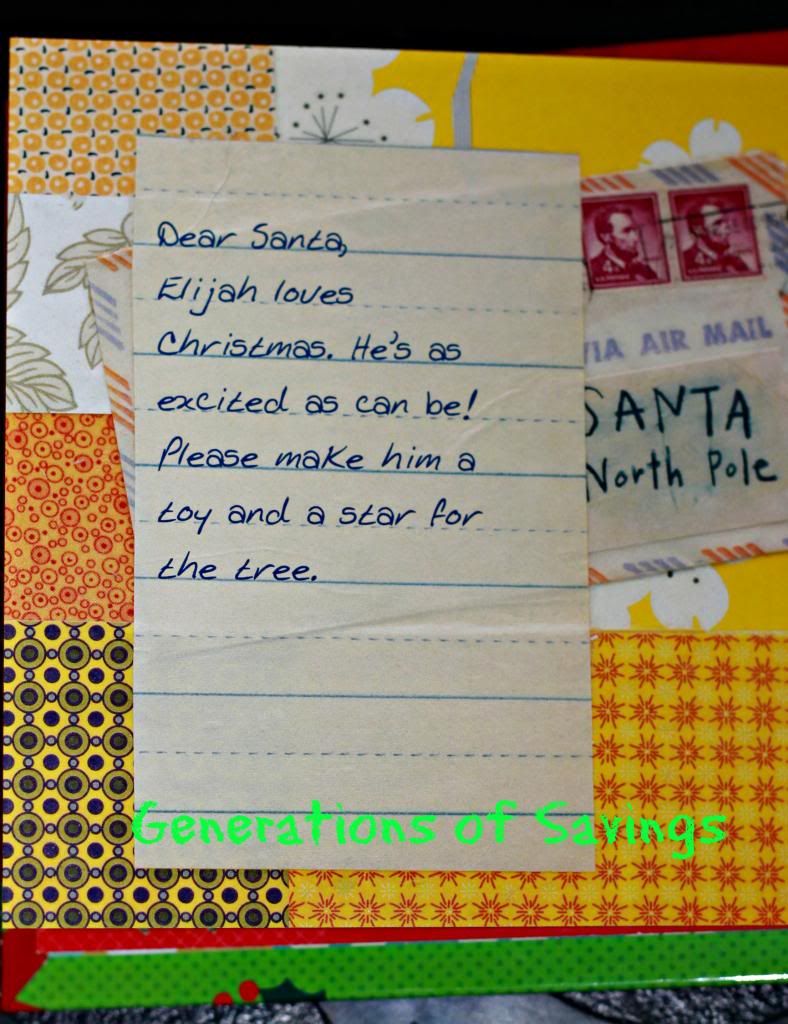 Dear Santa,
Elijah loves
Christmas. He's as
excited as can be!
Please make him a
toy and a star for
the tree.
4¢
4¢
VIA AIR MAIL
SANTA
North Pole
Generations of Savings